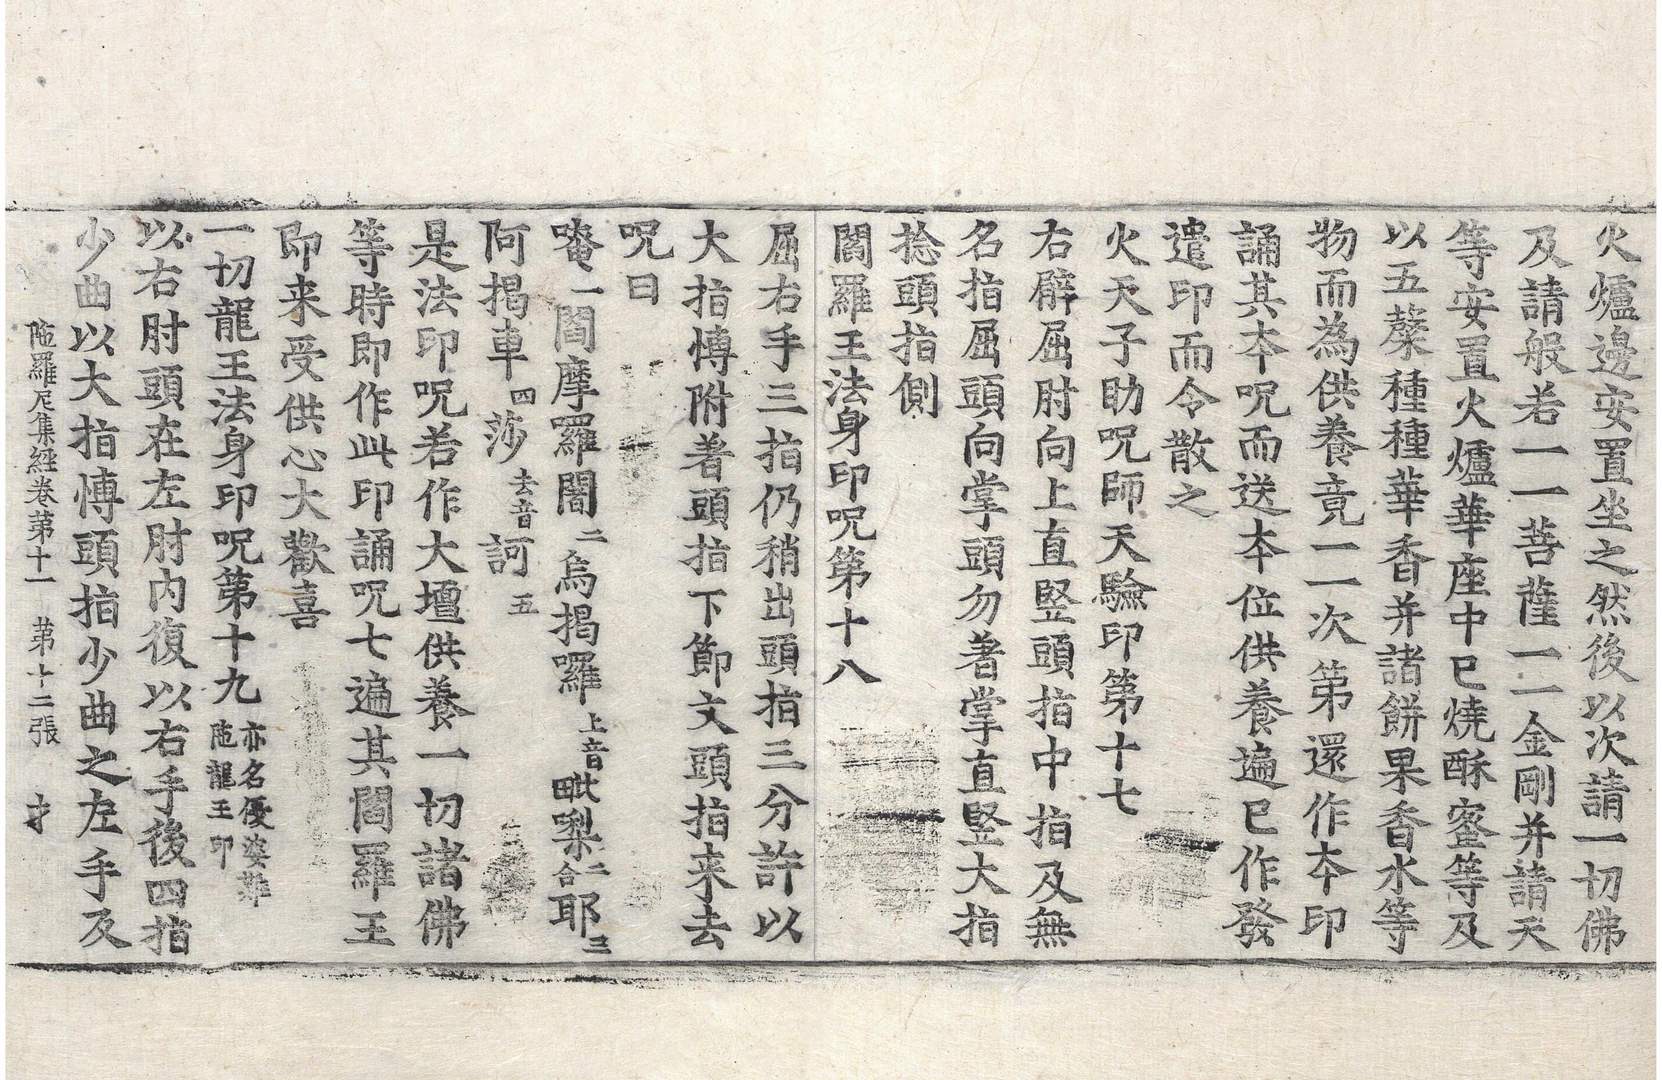 火爐邊安置坐之然後以次請一切佛
及請般若一一菩薩一一金剛并請天
等安置火爐華座中已燒酥蜜等及
以五糵種種華香并諸餅果香水等
物而為供養竟一一次第還作本印
誦其本呪而送本位供養遍已作發
遣印而令散之
火天子助呪師天驗印第十七
右癖屈肘向上直竪頭指中指及無
名指屈頭向掌頭勿著掌直竪大指
捻頭指側
閻羅王法身印呪第十八
屈右手三指仍稍出頭指三分許以
大指博附著頭指下節文頭指来去
呪曰
唵一閻摩羅闍二烏揭囉上音毗梨二合耶三
阿揭車四莎去音訶五
是法印呪若作大壇供養一切諸佛
等時即作此印誦呪七遍其閻羅王
即来受供心大歡喜
一切龍王法身印呪第十九亦名優婆難陁龍王印
以右肘頭在左肘内復以右手後四指
少曲以大指博頭指少曲之左手及
陁羅尼集經卷第十一 第十二張 才